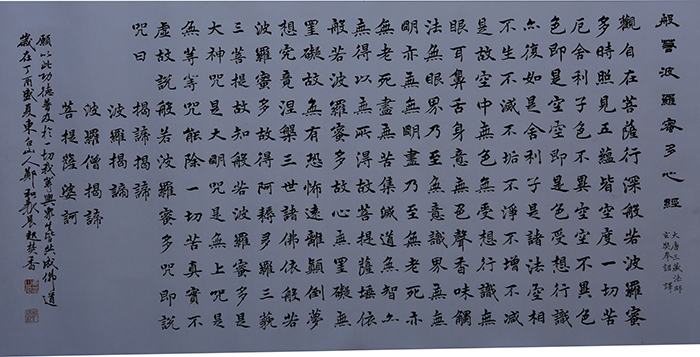 般若波羅蜜多心經
大唐三藏法師
玄奘奉詔譯
觀自在菩薩行深般若波羅蜜
多時照見五蘊皆空度一切苦
厄舍利子色不異空空不異色
色即是空空即是色受想行識
亦復如是舍利子是諸法空相
不生不滅不垢不淨不增不減
是故空中無色無受想行識無
眼耳鼻舌身意無色聲香味觸
法無眼界乃至無意識界無無
明亦無無明盡乃至無老死亦
無老死盡無苦集滅道無智亦
無得以無所得故菩提薩埵依
般若波羅蜜多故心無罣礙無
罣礙故無有恐怖遠離顛倒夢
想究竟涅槃三世諸佛依般若
波羅蜜多故得阿耨多羅三藐
三菩提故知般若波羅蜜多是
大神咒是大明咒是無上咒是
無等等咒能除一切苦真實不
虛故說般若波羅蜜多咒即說
咒曰 揭諦揭諦
波羅揭諦
波羅僧揭諦
菩提薩婆訶
願以此功德普及於一切我等與眾生皆共成佛道
歲在丁酉盛夏東台山人鄭和義焚香